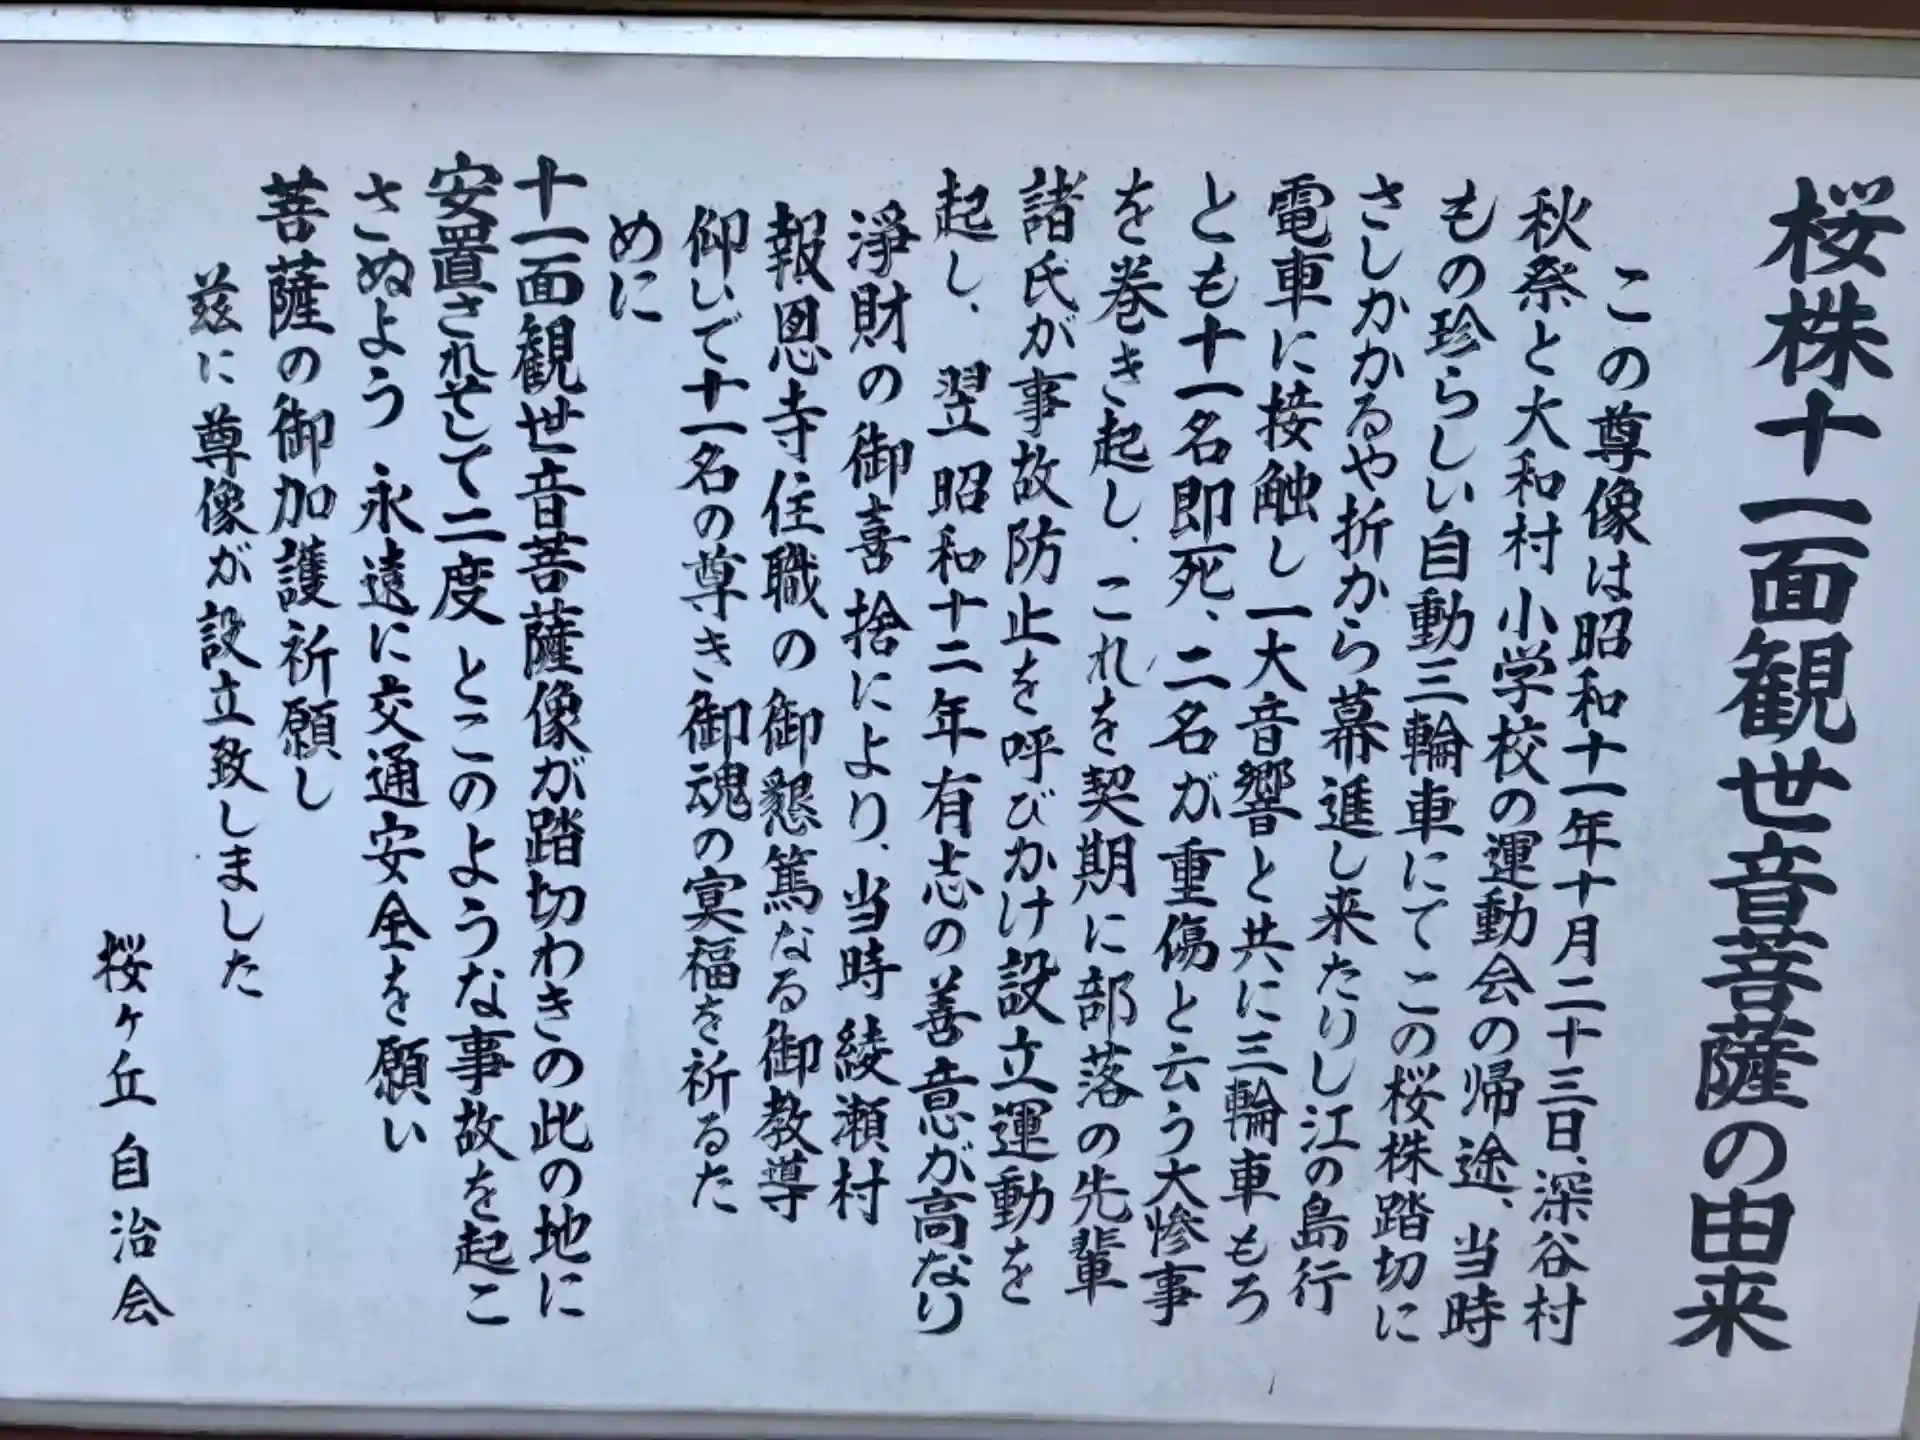 桜株十一面観世音菩薩の由来
この尊像は昭和十一年十月二十三日、深谷村
秋祭と大和村小学校の運動会の帰途、当時
もの珍らしい自動三輪車にてこの桜株踏切に
さしかかるや折から幕進し来たりし江の島行
電車に接触し一大音響と共に三輪車もろ
とも十一名即死、二名が重傷と云う大惨事
を巻き起し、これを契期に部落の先輩
諸氏が事故防止を呼びかけ設立運動を
起し、翌昭和十二年有志の善意が高なり
淨財の御喜捨により、当時綾瀬村
報恩寺住職の御懇篤なる御教導
仰いで十一名の尊き御魂の冥福を祈るた
めに
十一面観世音菩薩像が踏切わきの此の地に
安置されそして二度とこのような事故を起こ
さぬよう永遠に交通安全を願い
菩薩の御加護祈願し
茲に尊像が設立致しました
桜ヶ丘自治会